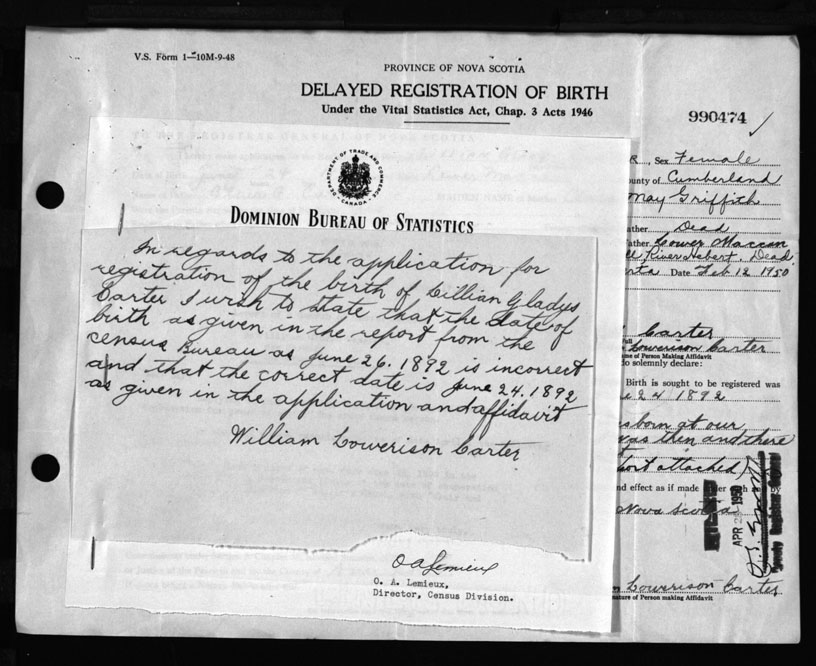 V.S. Form 1—10M-9-48
PROVINCE OF NOVA SCOTIA
DELAYED REGISTRATION OF BIRTH
Under the Vital Statistics Act, Chap. 3 Acts 1946
990474
DEPARTMENT OF TRADE AND COMMERCE
CANADA
DOMINION BUREAU OF STATISTICS
In regards to the application for
registration of the birth of Lillian Gladys
Carter I wish to state that the date of
birth as given in the report from the
census Bureau as June 26. 1892 is incorrect
and that the correct date is June 24. 1892
as given in the application and affidavit
William Lowerison Carter
O A Lemieux
O. A. Lemieux,
Director, Census Division.
R., Sex Female
ounty of Cumberland
May Griffith
ather Dead
ather Lower Maccan
River Hebert. Dead
erta Date Feb 12 1950
Carter
Lowerison Carter
me of Person Making Affidavit
do solemnly declare:
Birth is sought to be registered was
24 1892
born at our
was then and there
port attached)
nd effect as if made
Nova Scotia
APR 1950
Deputy Registrar
Lowerison Carter
nature of Person making Affidavit